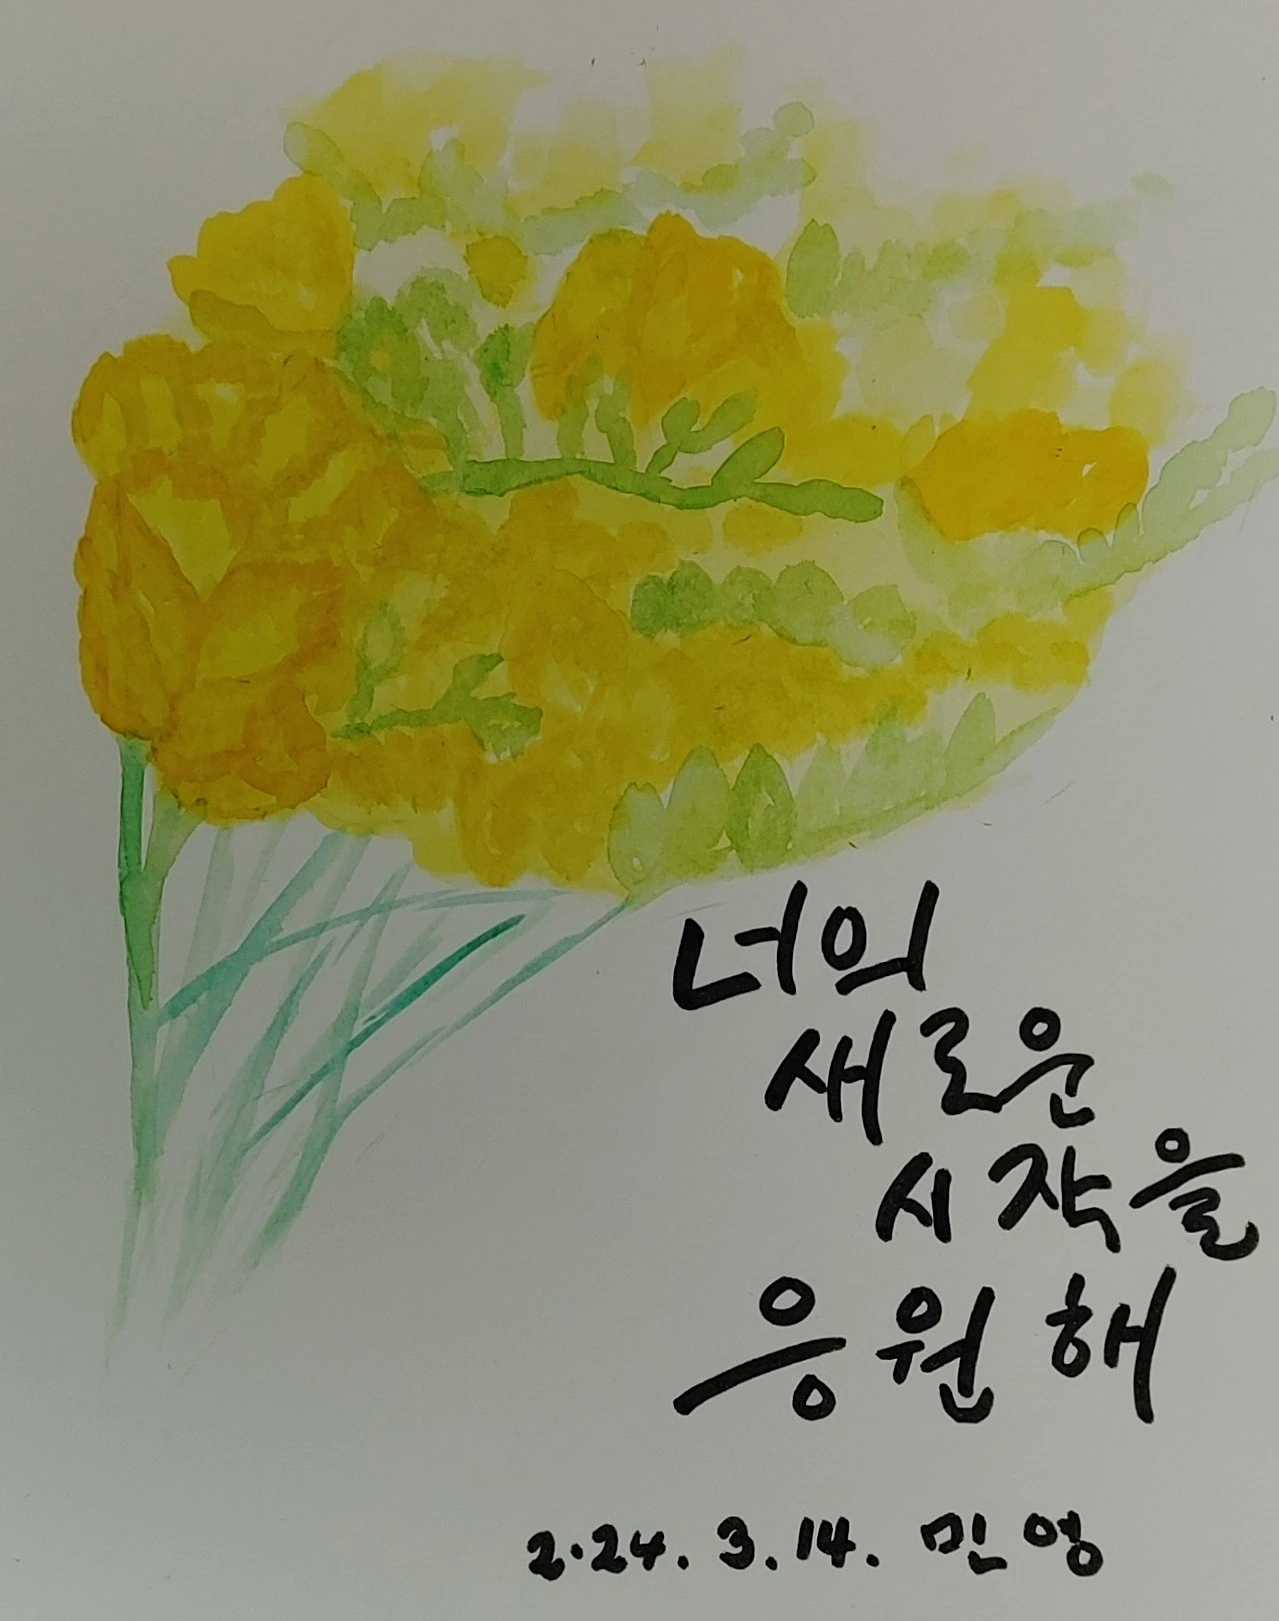 너의
새로운
시작을
응원해
2.24. 3. 14. 민영